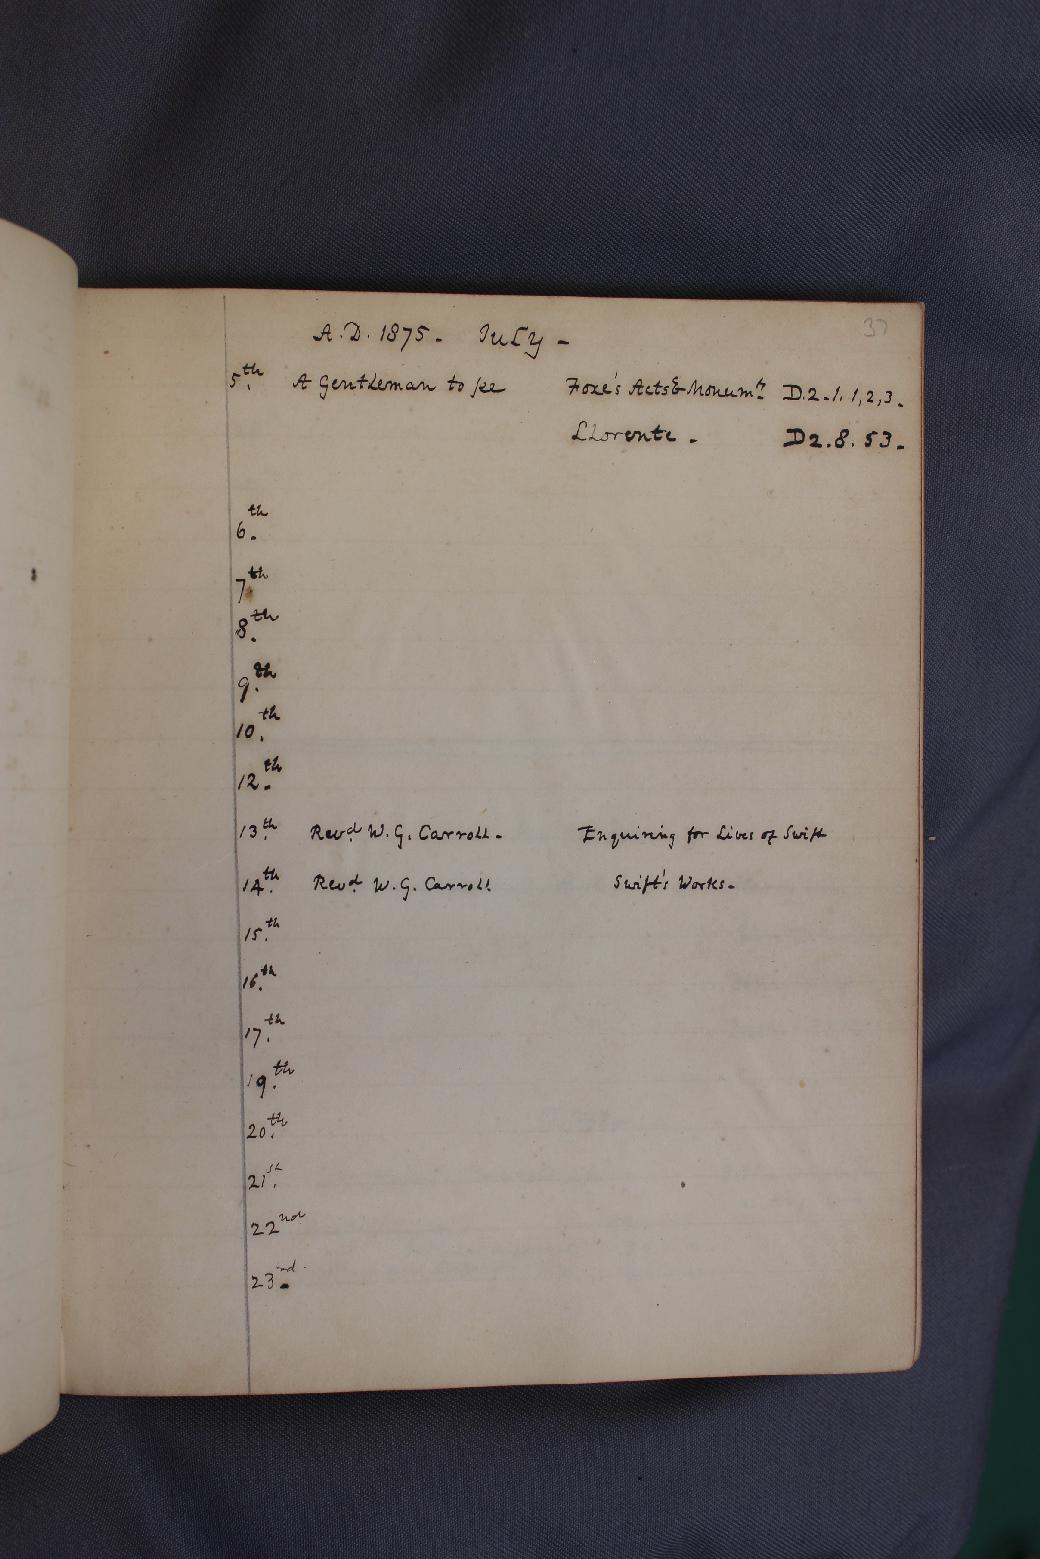 37
A.D. 1875. July -
5th. A Gentleman to see Foxe's Acts & Monumts. D.2.1.1,2,3.
Llorente. D2.8.53.
6th.
7th.
8th.
9th.
10th.
12th.
13th. Revd. W.G. Carroll. Enquiring for Lives of Swift
14th. Revd. W.G. Carroll Swift's Works.
15th.
16th.
17th.
19th.
20th.
21st.
22nd
23rd.